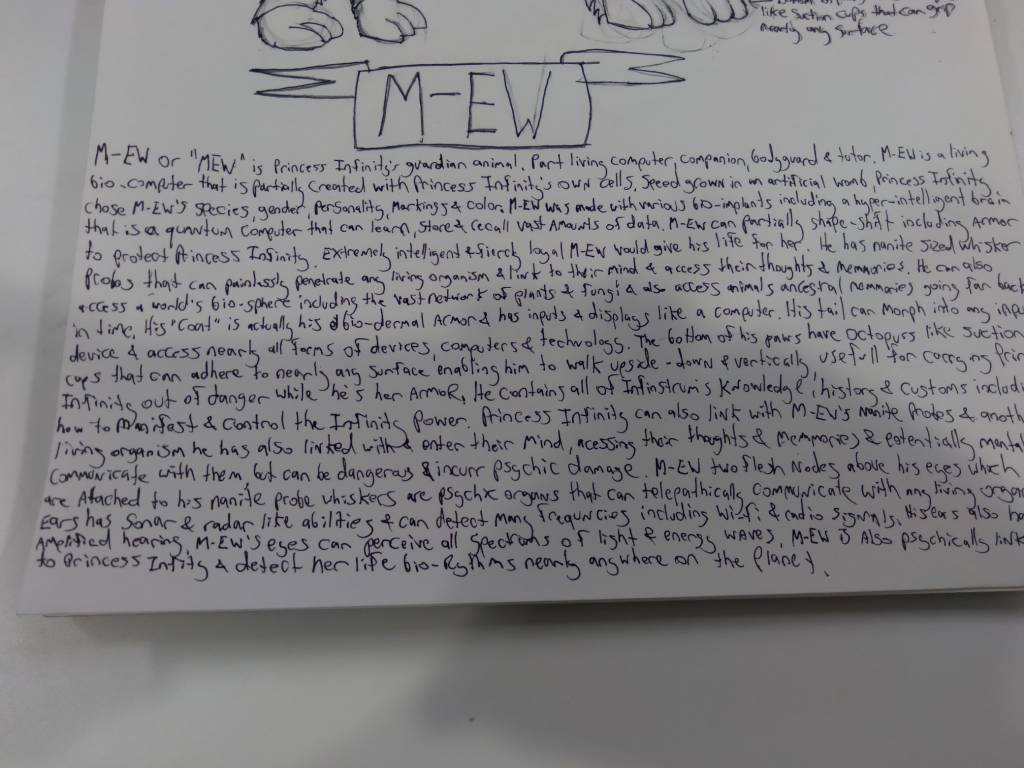 like suction cups that can grip
nearly any surface
M-EW
M-EW or "MEW" is Princess Infinity's guardian animal. Part living computer, companion, bodyguard & tutor. M-EW is a living
bio-computer that is partially created with Princess Infinity's own cells. Speed grown in an artificial womb, Princess Infinity
chose M-EW's species, gender, personality, markings & color. M-EW was made with various bio-implants including a hyper-intelligent brain
that is a quantum computer that can learn, store & recall vast amounts of data. M-EW can partially shape-shift including Armor
to protect Princess Infinity. Extremely intelligent & fiercly loyal M-EW would give his life for her. He has nanite sized whisker
Probes that can painlessly penetrate any living organism & link to their mind & access their thoughts & memories. He can also
access a world's bio-sphere including the vast network of plants & fungi & also access animals ancestral memories going far back
in time. His "Coat" is actually his bio-dermal Armor & has inputs & displays like a computer. His tail can morph into any input
device & access nearly all forms of devices, computers & technology. The bottom of his paws have octopurs like suction
cups that can adhere to nearly any surface enabling him to walk upside-down & vertically, usefull for carrying
Infinity out of danger while he's her Armor. He contains all of Infinstrum's Knowledge, history & customs
how to manifest & control the Infinity Power. Princess Infinity can also link with M-EW's nanite probes &
living organism he has also linked with & enter their mind, acessing their thoughts & memmories & potentially
communicate with them, but can be dangerous & incurr psychic damage. M-EW two flesh nodes above his eyes which
are Attached to his nanite probe whiskers are psychic organs that can telepathically communicate with any living
Ears has sonar & radar like abilities & can detect many frequncies including wi-fi & radio signals. His ears also
amplified hearing. M-EW's eyes can perceive all spectrums of light & energy waves. M-EW is Also psychically
to Princess Infity & detect her life bio-Rythms nearly anywhere on the planet.